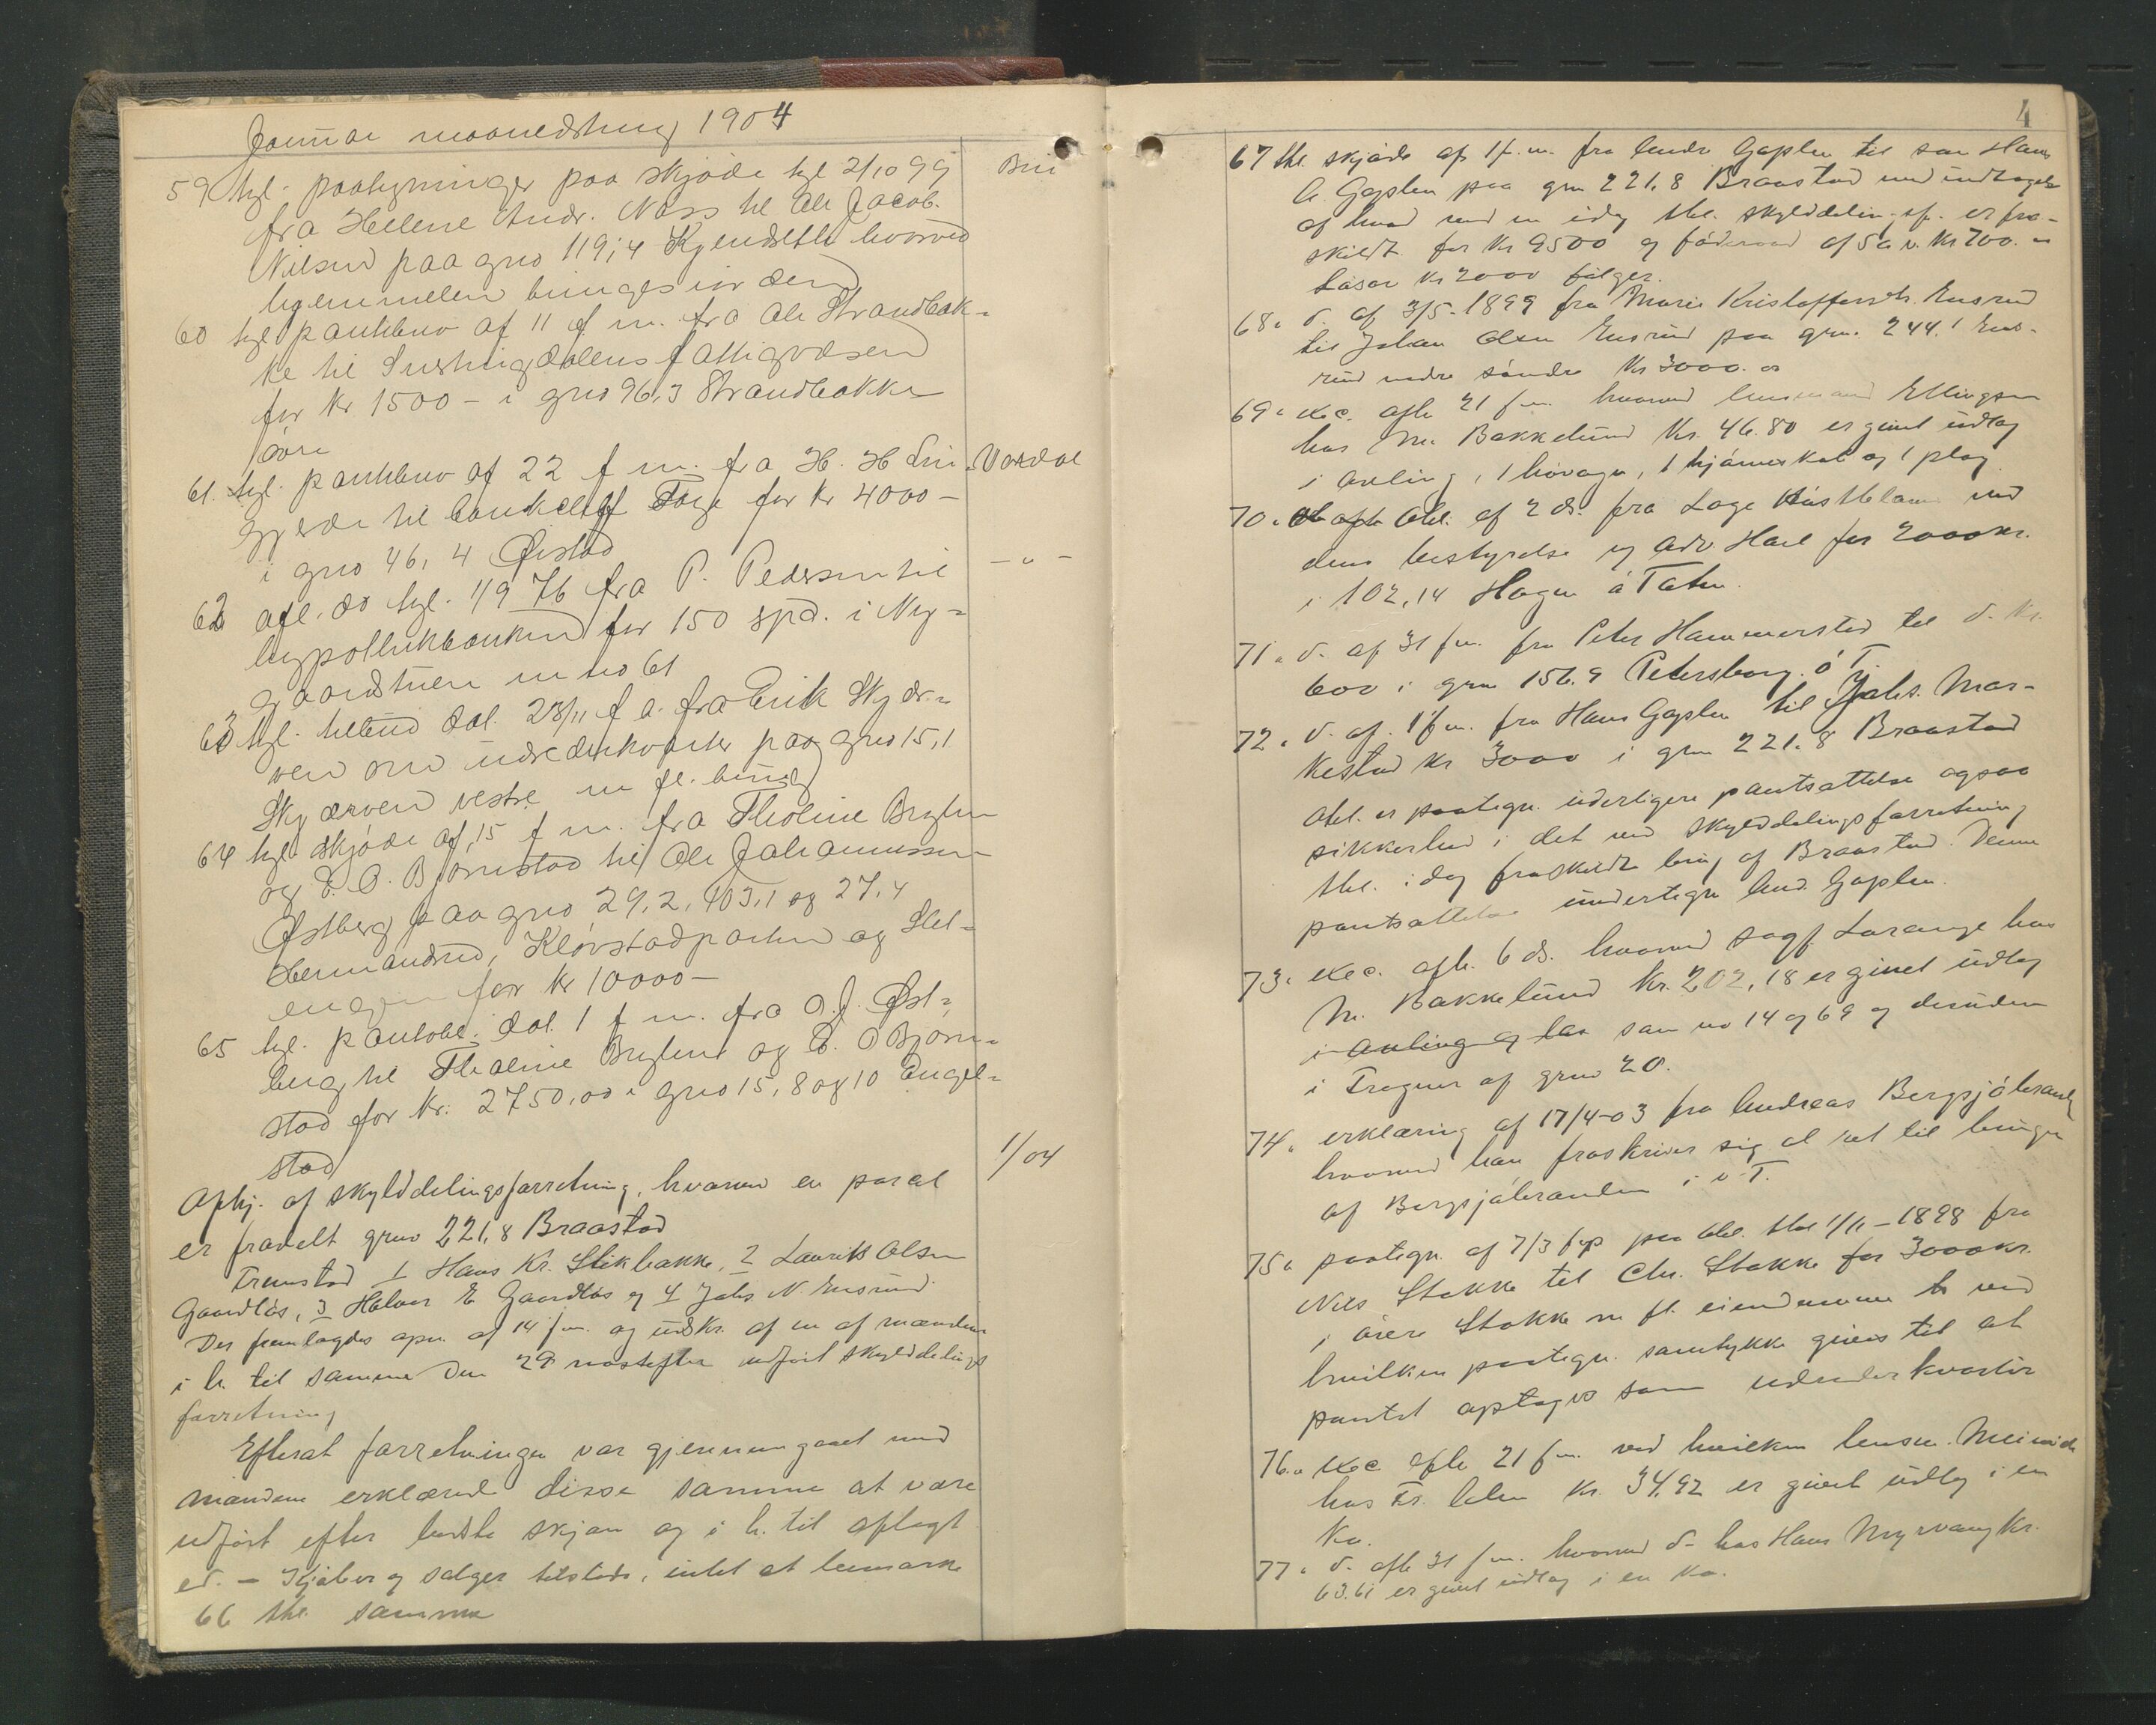 Januar maanedsting 1904
59 tgl. paategninger paa skjøde tgl 2/10 99 Bri
fra Hellene Andr. Næss til Ole Jacob.
Nilsen paa gno 119,4 Kjendseth hvorved
hjemmelen bringes i orden
60 tgl pantebrev af 11 f m. fra Ole Strandbak-
ke til fattigvæsen
for Kr 1500 - i gno 96,3 Strandbakke
øvre
61. tgl. pantebrev af 22 f m. fra H. H. Vardal
til for Kr 4000 -
i gno 46, 4 Øistad
62 afl. do tgl. 1/9 76 fra P. Pedersen til - " -
hypothekbanken for 150 spd. i Ny-
gaardstuen m no 61
63 tgl. dat. 23/11 f a. fra Erik Skjær-
ven om paa gno 15,1
Skjærven vestre m fl. brug
64 tgl. skjøde af 15 f m. fra Tholine Brylen
og E. O. Bjørnstad til Ole Johannessen
Østberg paa gno 29,2, 103,1 og 27,4
Hermandsrud, Kløvstadparten og Slet-
engen for Kr 10000 -
65 tgl. pantobl. dat. 1 f m. fra O. J. Øst-
berg til Tholine Brylen og E. O Bjørn-
stad for Kr: 2750,00 i gno 15, 8 og 10 Engel-
stad
Afhj. af skylddelingsforretning, hvorved en parcel 1/04
er fradelt gno 221,8 Braastad
Fremstod 1 Hans Kr. Stikbakke, 2 Laurits Olsen
Gaardløs, 3 Halvor E Gaardløs og 4 Johs. N. Ensrud.
Der fremlagdes opn. af 14 f m. og udskr. af en af mændene
i h. til samme den 29 næstefter udført skylddelings
forretning
Efterat forretningen var gjennemgaaet med
mændene erklærede disse samme at være
udført efter bedste skjøn og i h. til aflagt
ed. - Kjøber og sælger tilstede, intet at bemærke
66 thl. samme
4
67 thl. skjøde af 1 f. m. fra Andr Gaplen til søn Hans
A. Gaplen paa gno 221,8 Braastad med undtagelse
af hvad ved en idag thl. skylddelin. sf. er fra-
skildt for Kr 9500 og føderaad af 5 a v. Kr 700.
Løsøre Kr 2000 følger.
68 " d. af 3/5-1899 fra Marie Kristoffersdr. Ensrud
til Johan Olsen Ensrud paa gno. 244.1 Ens-
rud nedre søndre Kr 3000.00
69 " exec. afh 21 f m. hvorved lensmand Ellingsen
hos M. Bakkelund Kr. 46.80 er givet udlag
i avling, 1 høvogn, 1 hjørneskab og 1 plog
70 " obl. af 2 ds. fra Loge ved
dens bestyrelse og adv. Hoel for 2000 kr.
i 102,14 Hagen ø Toten.
71 " d. af 31 f m. fra Peter Hammerstad til d. Kr.
600 i gno 156.9 Petersborg ø T.
72 " d. af. 1 f m. fra Hans Gaplen til Johs. Mar-
kestad Kr 3000 i gno 221.8 Braastad
Obl. er paategn. yderligere pantsættelse ogsaa
sikkerhed i det ved skylddelingsforretning
thl. idag fraskildte brug af Braastad. Denne
pantsættelse undertegn And. Gaplen.
73 " exec. afh. 6 ds. hvorved sagf. Lorange hos
M. Bakkelund Kr. 202,18 er givet udlag
i avling og løs som no 14 og 69 og desuden
i af gno 20.
74 " erklæring af 17/4-03 fra Andreas Bergsjøbraaten
hvorved han fraskriver sig al ret til brugen
af Bergsjøbraaten i v. T.
75 " paategn. af 7/3 paa obl. thl 1/11-1898 fra
Nils Stokke til Chr. Stokke for 3000 kr.
i øvre Stokke m fl. eiendomme ved
hvilken paategn. samtykke gives til at
pantet optages som
76 " exec afh 21 f m. ved hvilken lensm.
hos Fr. Kr. 34.92 er givet udlag i en
Ko.
77 " d. afh 31 f m. hvorved d- hos Hans Myrvang Kr.
63.61 er givet udlag i en Ko.